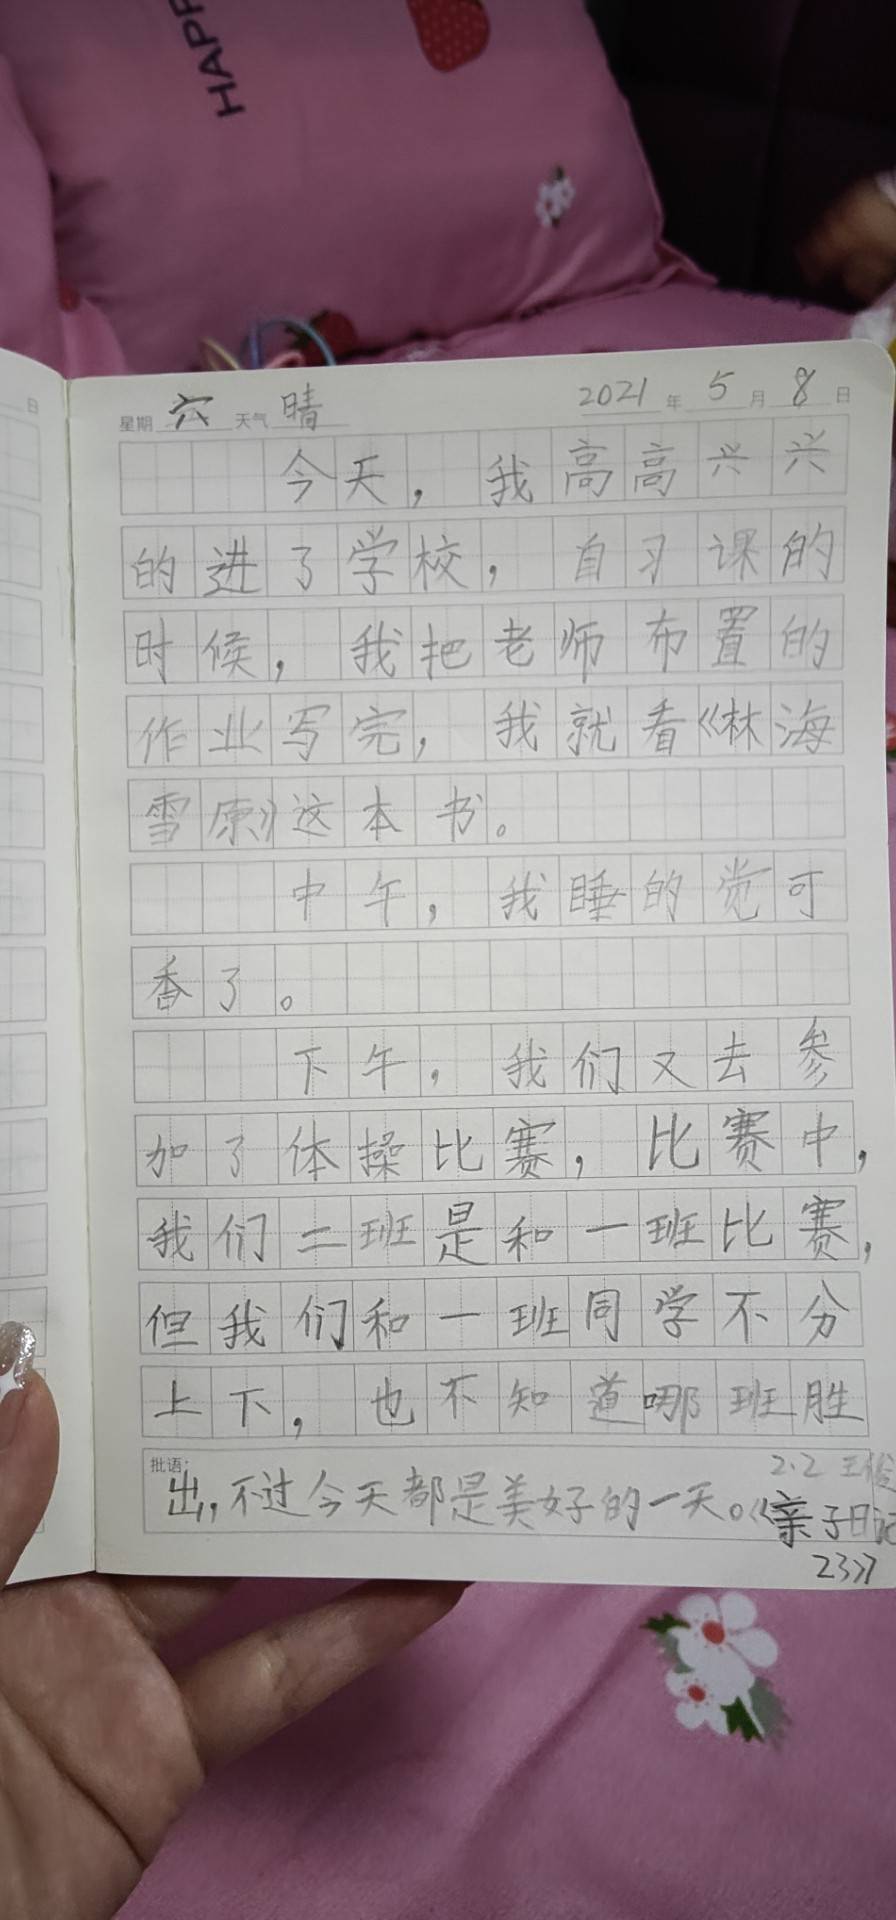 HAPP
日
星期 六 天气 晴 2021 年 5 月 8 日
今天，我高高兴兴
的进了学校，自习课的
时候，我把老师布置的
作业写完，我就看《林海
雪原》这本书。
中午，我睡的觉可
香了。
下午，我们又去参
加了体操比赛，比赛中，
我们二班是和一班比赛，
但我们和一班同学不分
上下，也不知道哪班胜
批语：
2.2 王
出，不过今天都是美好的一天。《亲子日记
23》